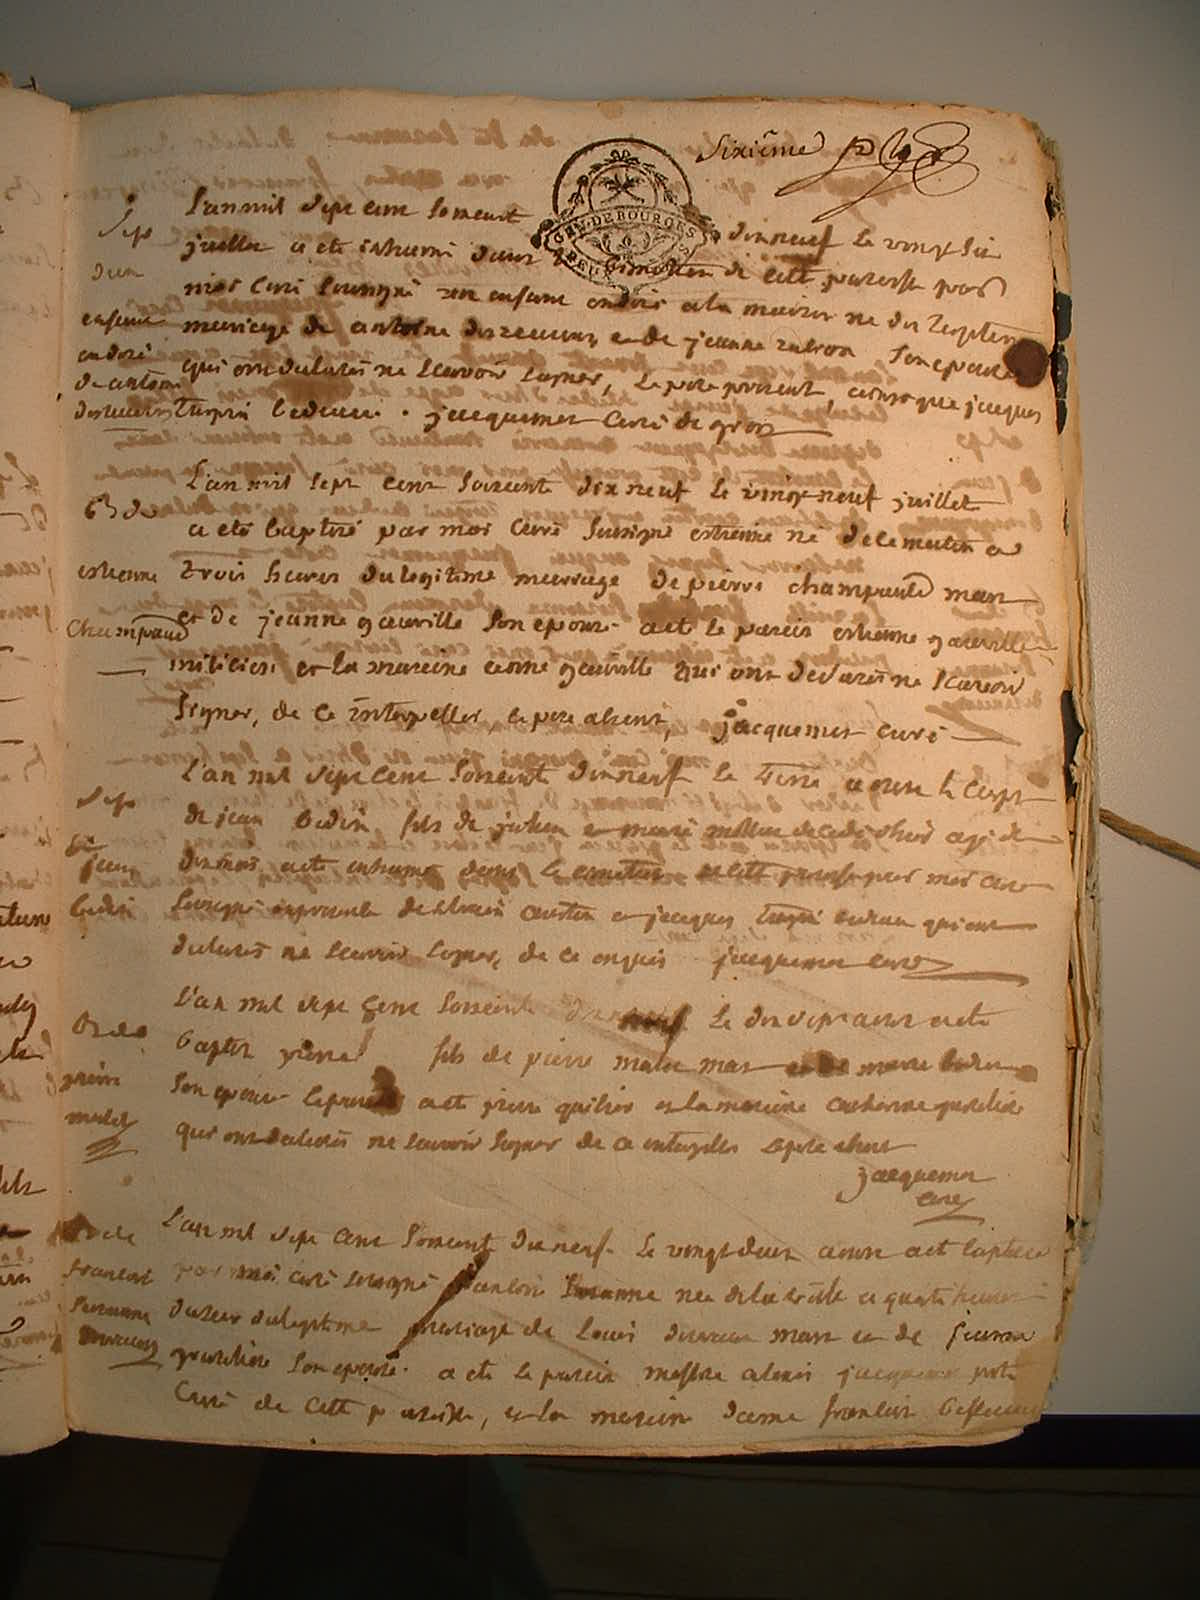 Sixième
GEN. DE BOURGES
L'an mil sept cent soixante dix neuf le vingt six
juillet a ete inhumé dans le cimetiere de cette paroisse par
moi curé soussigné un enfant ondoié a la maison né du legitime
mariage de antoine desreumes et de jeanne son epouse
qui ont declarés ne scavoir signer, le pere present, ainsi que jacques
turpin bedeau. jacquemet curé de
Sep
d'un
enfant
ondoié
de antoine
L'an mil sept cent soixante dix neuf le vingt neuf juillet
a eté baptisé par moi curé soussigné estienne né de ce matin a
trois heures du legitime mariage de pierre champault man
et de jeanne gauville son epouse. a ete le parein estienne gauville
milicien et la mareine anne gauville qui ont declarés ne scavoir
signer, de ce interpeller le pere absent, jacquemet curé
B de
estienne
champault
L'an mil sept cent soixante dix neuf le treize aoust le corps
de jean bedin, fils de julien et marie decedé hier agé de
dix mois a eté inhumé dans le cimetiere de cette paroisse par moi curé
soussigné en presence de et jacques turpin bedeau qui ont
declarés ne scavoir signer, de ce enquis jacquemet curé
Sep
de
jean
bedin
L'an mil sept cent soixante dix neuf le dix sept aoust a ete
baptisé pierre fils de pierre malet man et de marie bedin
son epouse le parein a ete pierre et la mareine catherine
qui ont declarés ne scavoir signer de ce interpellés le pere absent
jacquemet
curé
B de
pierre
malet
L'an mil sept cent soixante dix neuf le vingt deux aoust a ete baptisée
par moi curé soussigné francoise suzanne née de la veille a quatre heures
du soir du legitime mariage de louis man et de jeanne
son epouse. a ete le parein messire alexis jacquemet pretre
curé de cette paroisse, et la mareine dame francoise
B de
francoise
suzanne